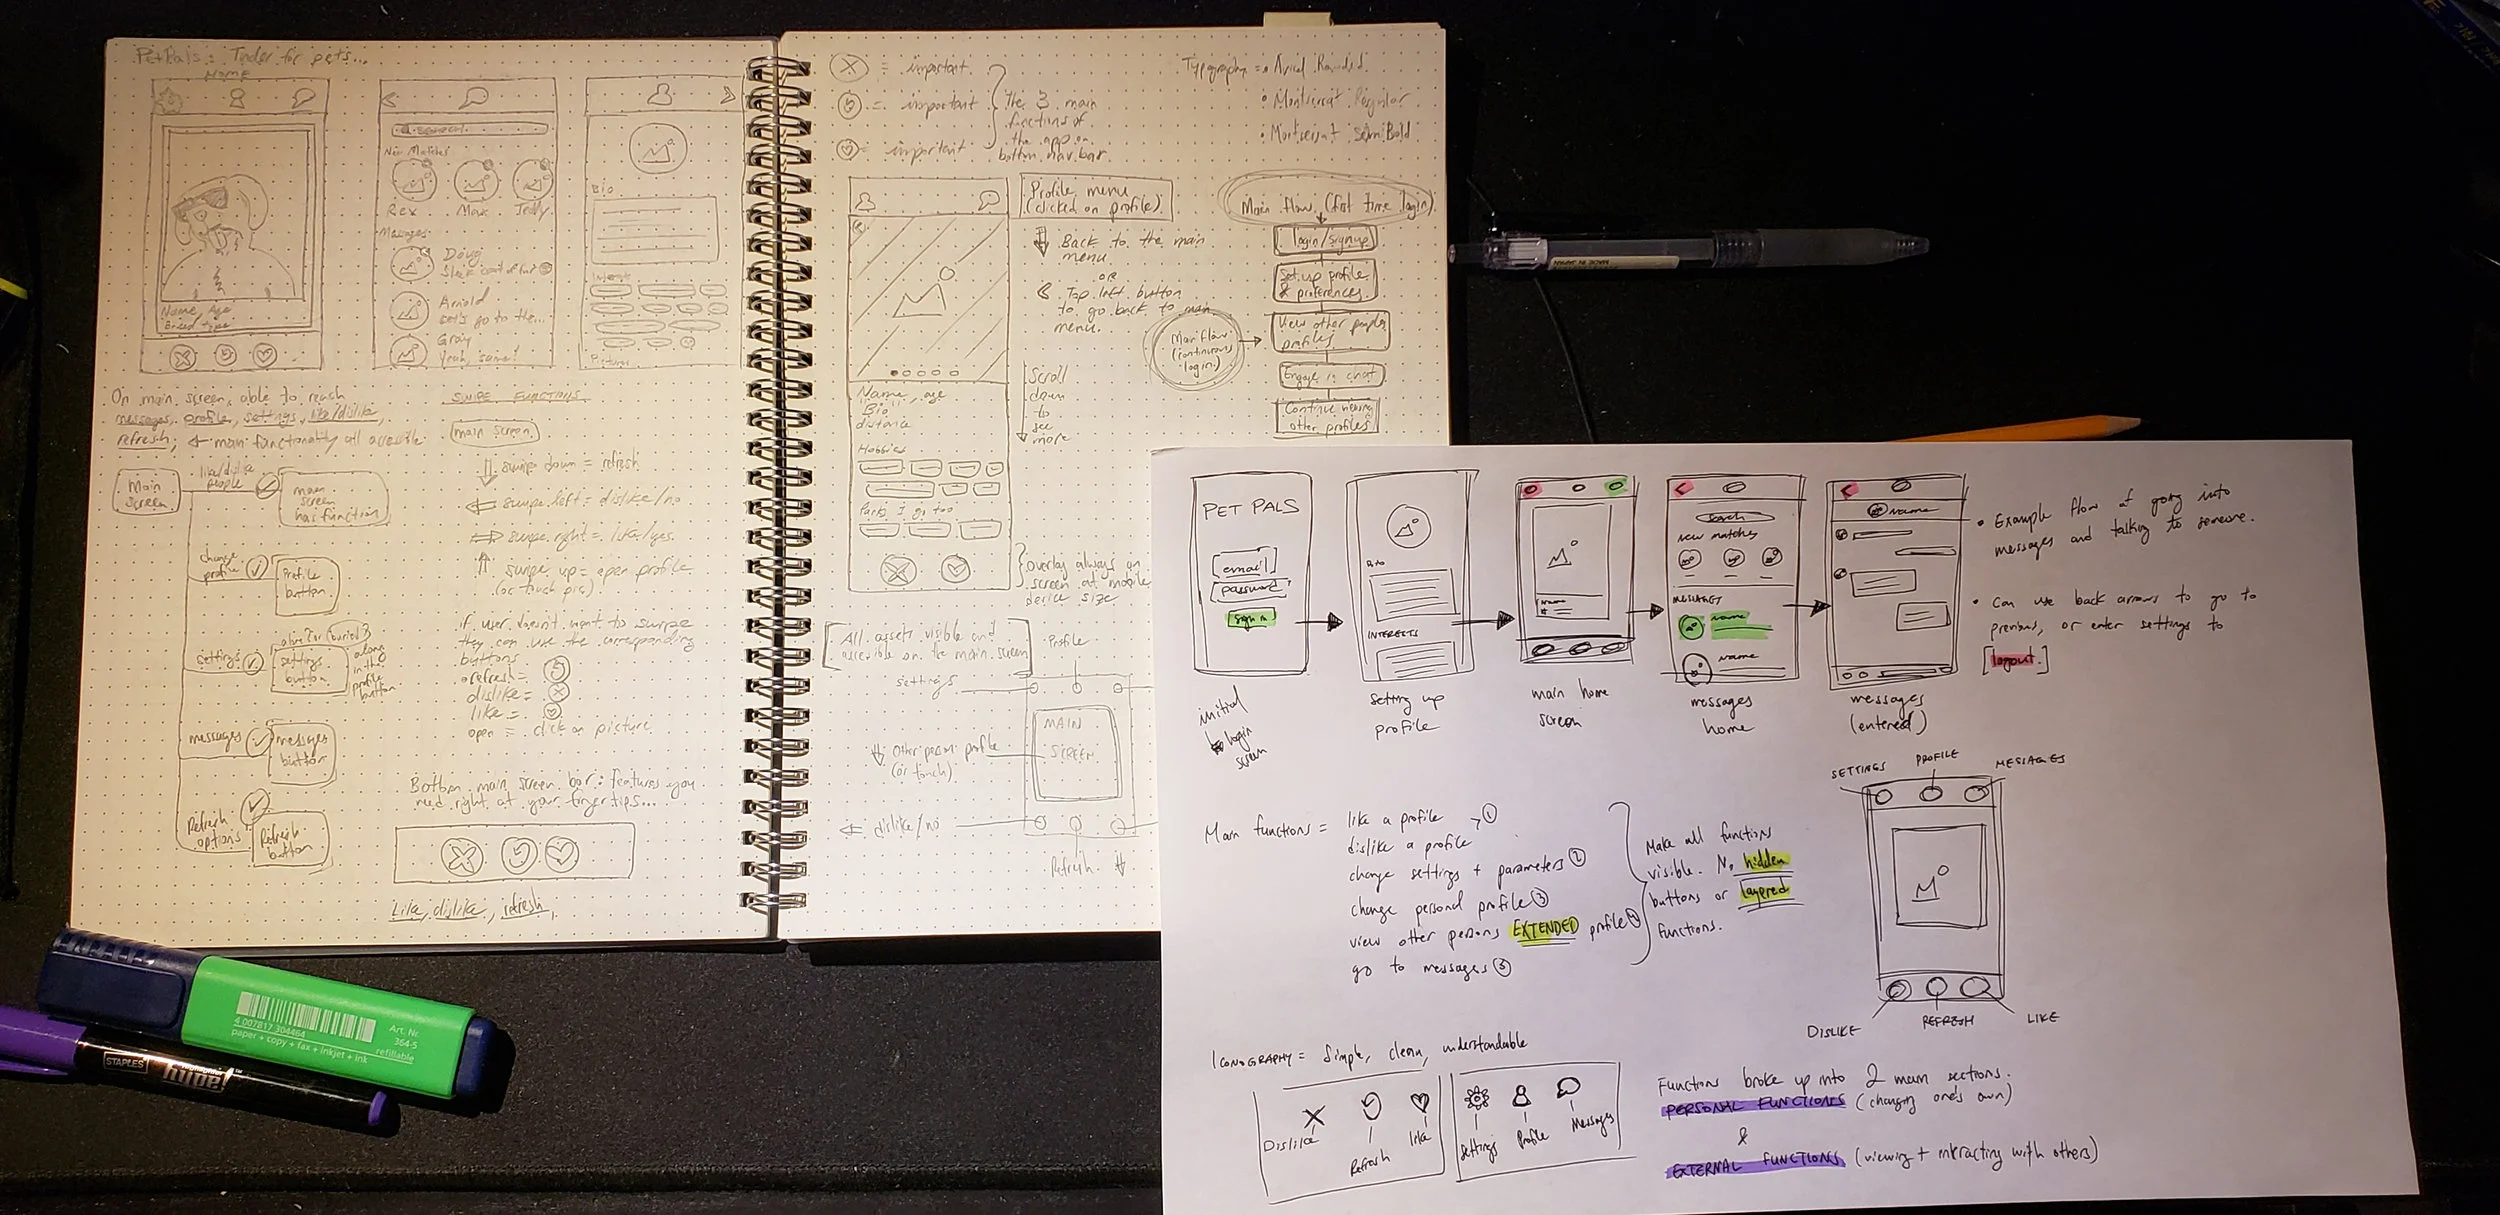 PetPals: Tinder for pets...
Home
Name, Age
Breed type
search
New Matches
Rex
Max
Teddy
Messages
Doug
Arnold
Let's go to the...
Gray
Yeah, same!
Bio
Interests
Pictures
On main screen, able to reach
messages, profile, settings, like/dislike,
refresh, main functionality all accessible
Main
screen
like/dislike
people
main
screen
has function
change
profile
Profile
button
settings
settings
button
along
in the
profile
button
messages
messages
button
Refresh
options
Refresh
button
SWIPE FUNCTIONS
main screen
swipe down = refresh
swipe left = dislike/no
swipe right = like/yes
swipe up = open profile
(or touch pic)
if user doesn't want to swipe
they can use the corresponding
buttons
refresh =
dislike =
like =
open = click on picture
Bottom main screen bar: features you
need right at your fingertips...
Like, dislike, refresh,
= important
= important
= important
The 3 main
functions of
the app on
bottom nav bar
Typography = • Arial Rounded
• Montserrat Regular
• Montserrat SemiBold
Profile menu
(clicked on profile)
Back to the main
menu.
OR
< Top left button
to go back to main
menu.
Scroll
down
to
see
more
Name, age
Bio
distance
Hobbies
Parks I go too
overlay always on
screen at mobile
device size
Main flow (first time login)
login/signup
Set up profile
& preferences
View other peoples
profiles
Engage in chat
Continue viewing
other profiles
Main flow
(continuous
login)
All assets visible and
accesible on the main screen
Profile
settings
MAIN
SCREEN
Other person profile
(or touch)
dislike/no
Refresh
PET PALS
email
password
sign in
initial
login
screen
Bio
INTERESTS
setting up
profile
Name
main home
screen
search
new matches
MESSAGES
name
name
messages
home
name
messages
(entered)
• Example flow of going into
messages and talking to someone.
• Can use back arrows to go to
previous, or enter settings to
[logout.]
SETTINGS
PROFILE
MESSAGES
DISLIKE
REFRESH
LIKE
Main functions = like a profile 1
dislike a profile
change settings + parameters 2
change personal profile 3
view other persons EXTENDED profile
go to messages
Make all functions
visible. No hidden
buttons or layered
functions.
ICONOGRAPHY = Simple, clean, understandable
Dislike
Refresh
like
settings
Profile
Messages
Functions broke up into 2 main sections.
PERSONAL FUNCTIONS (changing one's own)
&
EXTERNAL FUNCTIONS (viewing + interacting with others)
4 007817 304464
paper + copy + fax + inkjet + ink
Art. Nr.
364-5
refillable
STAPLES
hype!